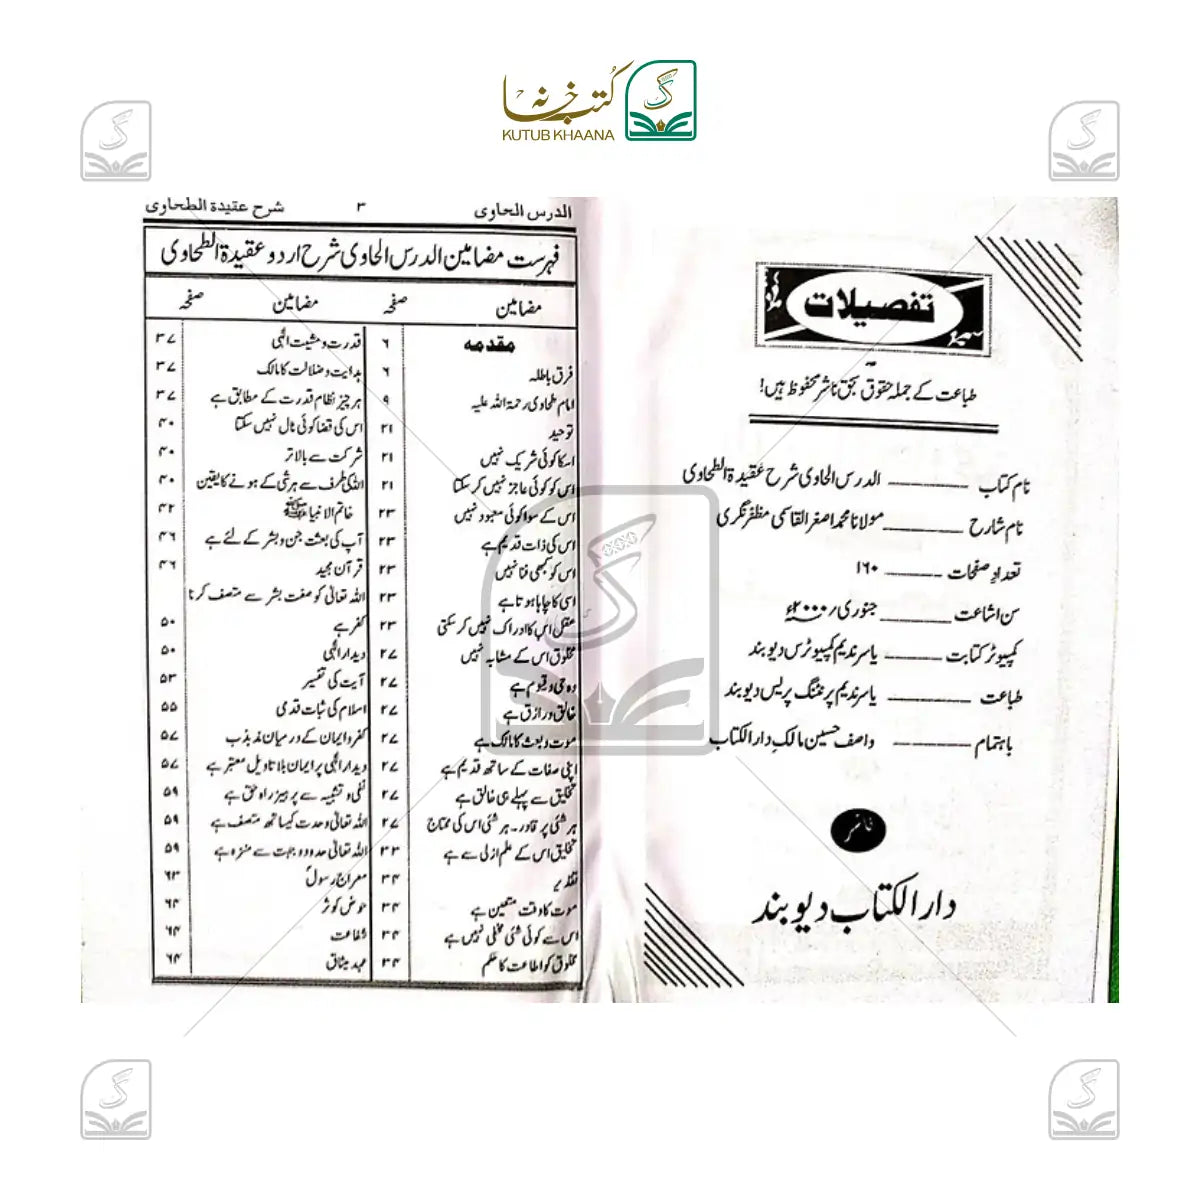 کتب خانہ
KUTUB KHAANA
تفصیلات
طباعت کے جملہ حقوق بحق ناشر محفوظ ہیں!
نام کتاب ــــــ الدرس الحاوی شرح عقیدۃ الطحاوی
نام شارح ــــــ مولانا محمد اصغر القاسمی مظفر نگری
تعداد صفحات ــــــ ۱۶۰
سن اشاعت ــــــ جنوری ۲۰۰۰ء
کمپیوٹر کتابت ــــــ یاسر ندیم کمپیوٹرس دیوبند
طباعت ــــــ یاسر ندیم پرنٹنگ پریس دیوبند
باہتمام ــــــ واصف حسین مالک دار الکتاب
ناشر
دار الکتاب دیوبند
الدرس الحاوی ۳ شرح عقیدۃ الطحاوی
فہرست مضامین الدرس الحاوی شرح اردو عقیدۃ الطحاوی
مضامین صفحہ
مقدمہ ۶
فرق باطلہ ۶
امام طحاوی رحمۃ اللہ علیہ ۹
توحید ۲۱
اسکا کوئی شریک نہیں ۲۱
اس کو کوئی عاجز نہیں کر سکتا ۲۱
اس کے سوا کوئی معبود نہیں ۲۳
اس کی ذات قدیم ہے ۲۳
اس کو کبھی فنا نہیں ۲۳
اسی کا چاہا ہوتا ہے ۲۳
عقل اس کا ادراک نہیں کر سکتی ۲۳
مخلوق اس کے مشابہ نہیں ۲۷
وہ حی و قیوم ہے ۲۷
خالق و رازق ہے ۲۷
موت و بعث کا مالک ہے ۲۷
اپنی صفات کے ساتھ قدیم ہے ۲۷
تخلیق سے پہلے ہی خالق ہے ۲۷
ہر شئی پر قادر۔ ہر شئی اس کی محتاج ۲۷
تخلیق اس کے علم ازلی سے ہے ۳۳
تقدیر ۳۴
موت کا وقت متعین ہے ۳۴
اس سے کوئی شئی مخفی نہیں ہے ۳۴
مخلوق کو اطاعت کا حکم ۳۴
مضامین صفحہ
قدرت و مشیت الٰہی ۳۷
ہدایت و ضلالت کا مالک ۳۷
ہر چیز نظام قدرت کے مطابق ہے ۳۷
اس کی قضا کوئی ٹال نہیں سکتا ۴۰
شرکت سے بالاتر ۴۰
اللہ کی طرف سے ہر شی کے ہونے کا یقین ۴۰
خاتم الانبیاء ﷺ ۴۲
آپ کی بعثت جن و بشر کے لئے ہے ۴۶
قرآن مجید ۴۶
اللہ تعالٰی کو صفت بشر سے متصف کرنا
کفر ہے ۵۰
دیدار الٰہی ۵۰
آیت کی تفسیر ۵۳
اسلام کی ثبات قدمی ۵۵
کفر و ایمان کے درمیان مذبذب ۵۷
دیدار الٰہی پر ایمان بلا تاویل معتبر ہے ۵۷
نفی و تشبیہ سے پرہیز راہ حق ہے ۵۹
اللہ تعالٰی وحدت کیساتھ متصف ہے ۵۹
اللہ تعالٰی حدود و جہت سے منزہ ہے ۵۹
معراج رسولؐ ۶۳
حوض کوثر ۶۴
شفاعت ۶۴
عہد میثاق ۶۴